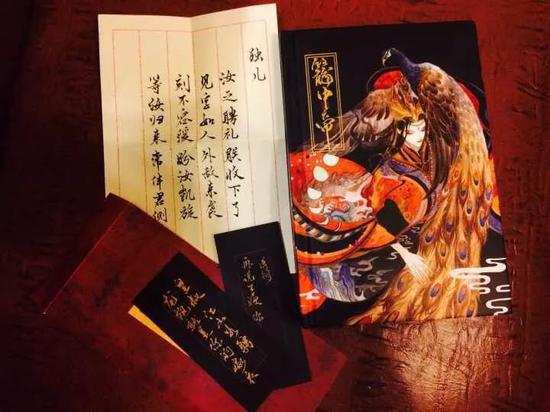 独儿
汝之聘礼朕收下了
见如人外敌来袭
刻不容缓盼汝凯旋
等汝归来常伴君侧
籠中帝
皇叔
江山为聘